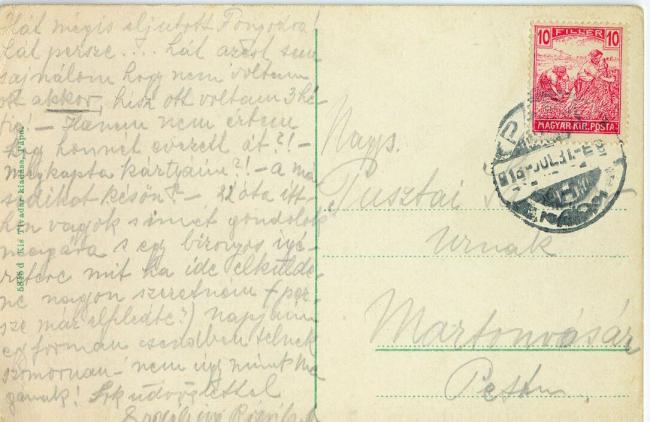 Hát mégis eljutott Fonyódra!
hát persze... hát azért sem
sajnálom hogy nem voltam
ott akkor, hisz ott voltam 3 hé-
tig! – Hanem nem értem
hogy honnet érzett át?! –
megkapta kártyáim?! – a má-
sodikat későn? – 11 óta itt-
hon vagyok s ismét gondolok
magára s egy bizonyos igé-
retére mit ha ide elküldé-
ne nagyon szeretném (per-
sze már elfeledte?) napjaim
egyformán csendben telnek
szomorúan – nem úgy mint ma-
gának! Szk üdvözlettel
5848 d Kis Tivadar kiadása, Pápa.
10 FILLER 10
MAGYAR KIR. POSTA
918 JUL. 31.
Nags.
Pusztai
Urnak
Martonvásár
Pest m.